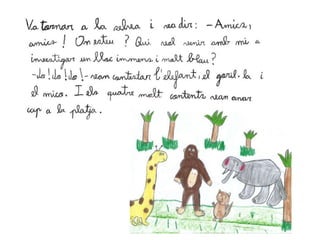 Va tornar a la selva i va dir: - Amics,
amics! On esteu? Qui vol venir amb mi a
investigar un lloc immens i molt blau?
-Jo! Jo! Jo! - van contestar l'elefant, el goril·la i
el mico. I els quatre molt contents van anar
cap a la platja.